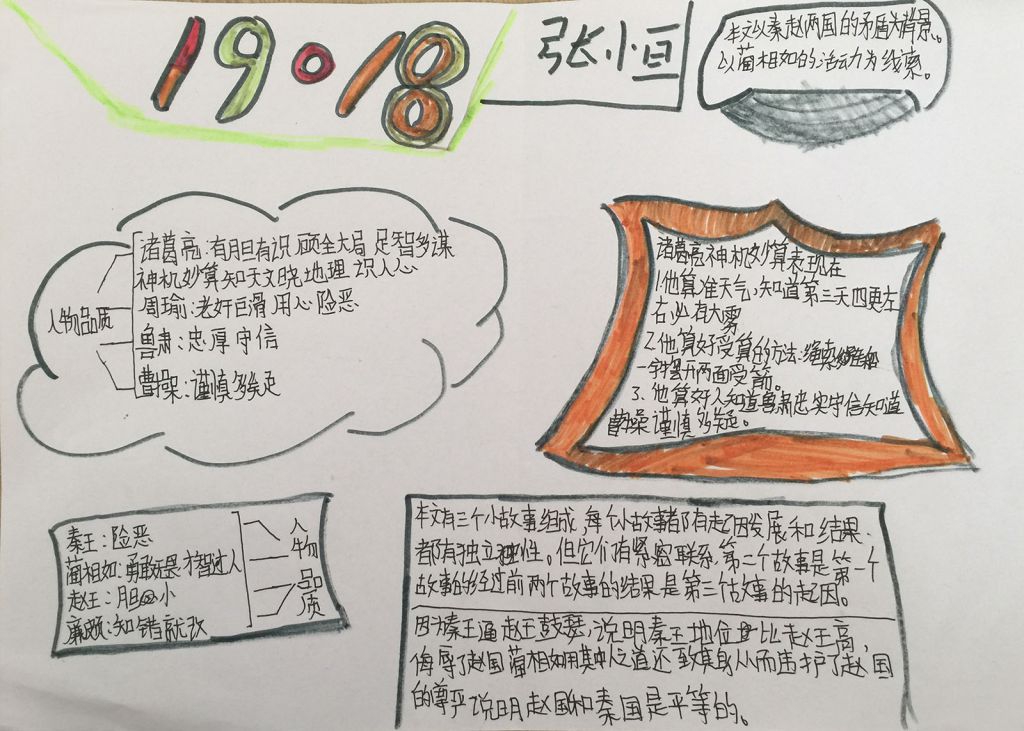 19·18
张小恒
本文以秦赵两国的矛盾为背景。
以蔺相如的活动力为线索。
人物品质
诸葛亮:有胆有识 顾全大局 足智多谋
神机妙算知天文晓地理 识人心
周瑜:老奸巨滑 用心险恶
鲁肃:忠厚守信
曹操:谨慎多疑
诸葛亮神机妙算表现在
1.他算准天气,知道第三天四更左
右,必有大雾
2.他算好受算的方法:绳索
一字摆开两面受箭。
3、他算好人知道鲁肃忠实守信知道
曹操谨慎多疑。
秦王:险恶
蔺相如:勇敢无畏 才智过人
赵王:胆小
廉颇:知错就改
人物品质
本文有三个小故事组成,每个小故事都有起因发展和结果:
都有独立性。但它们有紧密联系,第二个故事是第一个
故事的经过前两个故事的结果是第三个故事的起因。
因为秦王逼赵王鼓瑟,说明秦王地位比赵王高,
侮辱了赵国蔺相如用其中人之道还至其身从而维护了赵国
的尊乎说明赵国和秦国是平等的。